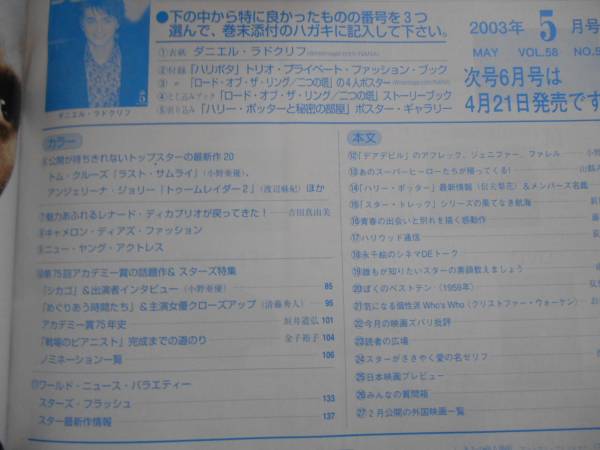 ●下の中から特に良かったものの番号を3つ
選んで、巻末添付のハガキに記入して下さい。
①表紙 ダニエル・ラドクリフ
②付録「ハリポタ」トリオ・プライベート・ファッション・ブック
③〃「ロード・オブ・ザ・リング/二つの塔」の4人ポスター
④とじ込みブック「ロード・オブ・ザ・リング/二つの塔」ストーリーブック
⑤折り込み「ハリー・ポッターと秘密の部屋」ポスター・ギャラリー
ダニエル・ラドクリフ
2003年 5月号
MAY VOL.58 NO.5
次号6月号は
4月21日発売です
カラー
⑥公開が待ちきれないトップスターの最新作20
トム・クルーズ「ラスト・サムライ」(小野亜優)、
アンジェリーナ・ジョリー「トゥームレイダー2」(渡辺麻紀)ほか
⑦魅力あふれるレナード・ディカプリオが戻ってきた! 吉田真由美
⑧キャメロン・ディアズ・ファッション
⑨ニュー・ヤング・アクトレス
⑩第75回アカデミー賞の話題作&スターズ特集
「シカゴ」&出演者インタビュー(小野亜優) 85
「めぐりあう時間たち」&主演女優クローズアップ(斉藤秀人) 95
アカデミー賞75年史 垣井道弘 101
「戦場のピアニスト」完成までの道のり 金子裕子 104
ノミネーション一覧 106
⑪ワールド・ニュース・バラエティー
スターズ・フラッシュ 133
スター最新作情報 137
本文
⑫「デアデビル」のアフレック、ジェニファー、ファレル
⑬あのスーパーヒーローたちが帰ってくる!
⑭「ハリー・ポッター」最新情報&メンバーズ名鑑
⑮「スター・トレック」シリーズの果てなき航海
⑯青春の出会いと別れを描く感動作
⑰ハリウッド通信
⑱永千絵のシネマDEトーク
⑲誰もが知りたいスターの素顔教えましょう
⑳ぼくのベストテン(1958年)
㉑気になる個性派 Who's Who(クリストファー・ウォーケン)
㉒今月の映画ズバリ批評
㉓読者の広場
㉔スターがささやく愛の名セリフ
㉕日本映画プレビュー
㉖みんなの質問箱
㉗2月公開の外国映画一覧